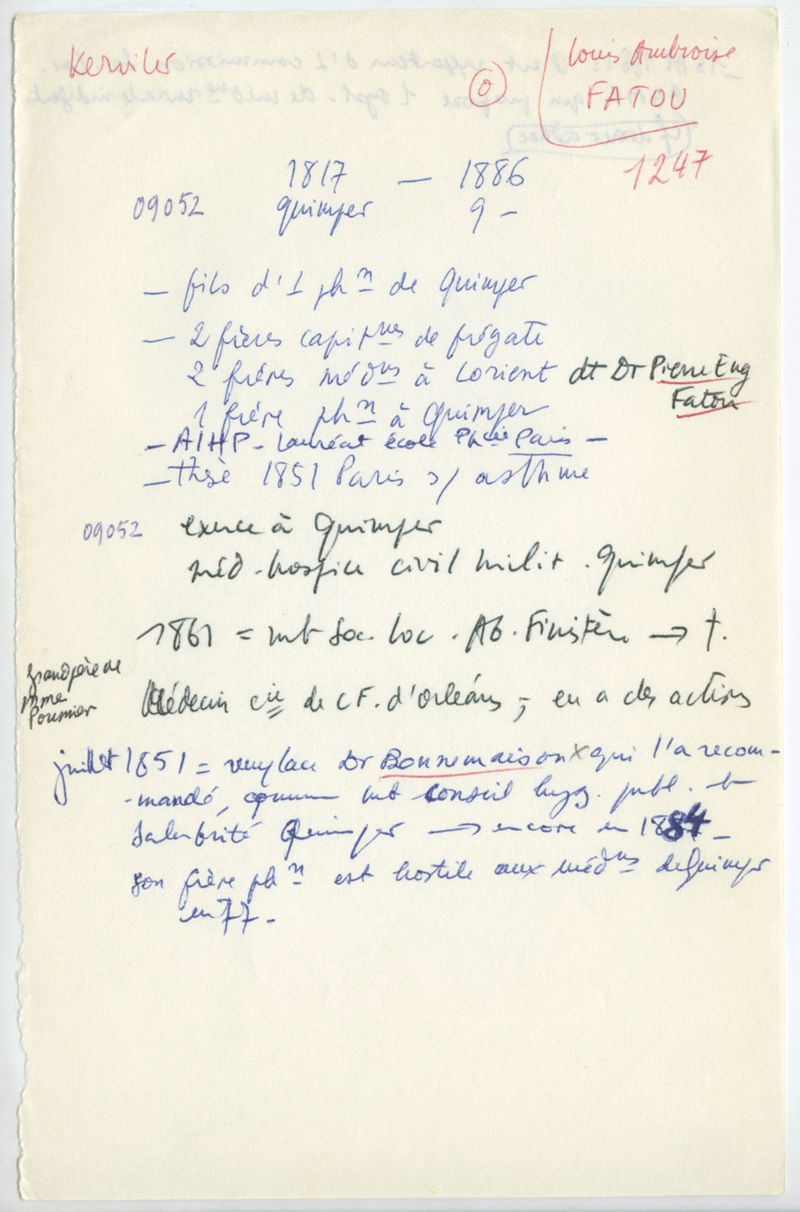 Kerviler
O
Louis Ambroise
FATOU
1247
1817 — 1886
09052 Quimper 9 -
— fils d'1 phn de Quimper
— 2 frères capitnes de frégate
2 frères médns à Lorient dt Dr Pierre Eug
Fatou
1 frère phn à Quimper
— AIHP - Lauréat école Phcie Paris —
— thèse 1851 Paris s/ asthme
09052 exerce à Quimper
méd - hospice civil milit . Quimper
1861 = mb Soc. loc . Ab . Finistère → †.
Grandpère de
Mme
Poumier
Médecin cie de CF. d'Orléans ; en a des actions
juillet 1851 = remplace Dr Bonnemaison x qui l'a recom-
-mandé, comme mb conseil hyg. publ. et
Salubrité Quimper → encore en 1884 -
son frère phn est hostile aux médns de Quimper
en 77 -